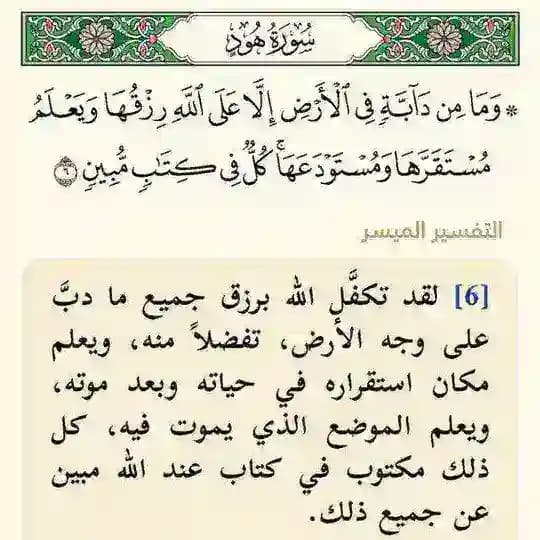 سُورَةُ هُودٍ
* وَمَا مِن دَآبَّةٍ فِي ٱلْأَرْضِ إِلَّا عَلَى ٱللَّهِ رِزْقُهَا وَيَعْلَمُ
مُسْتَقَرَّهَا وَمُسْتَوْدَعَهَاۚ كُلٌّ فِي كِتَٰبٍ مُّبِينٍ ٦
التفسير الميسر
[6] لقد تكفَّل الله برزق جميع ما دبَّ
على وجه الأرض، تفضلاً منه، ويعلم
مكان استقراره في حياته وبعد موته،
ويعلم الموضع الذي يموت فيه، كل
ذلك مكتوب في كتاب عند الله مبين
عن جميع ذلك.